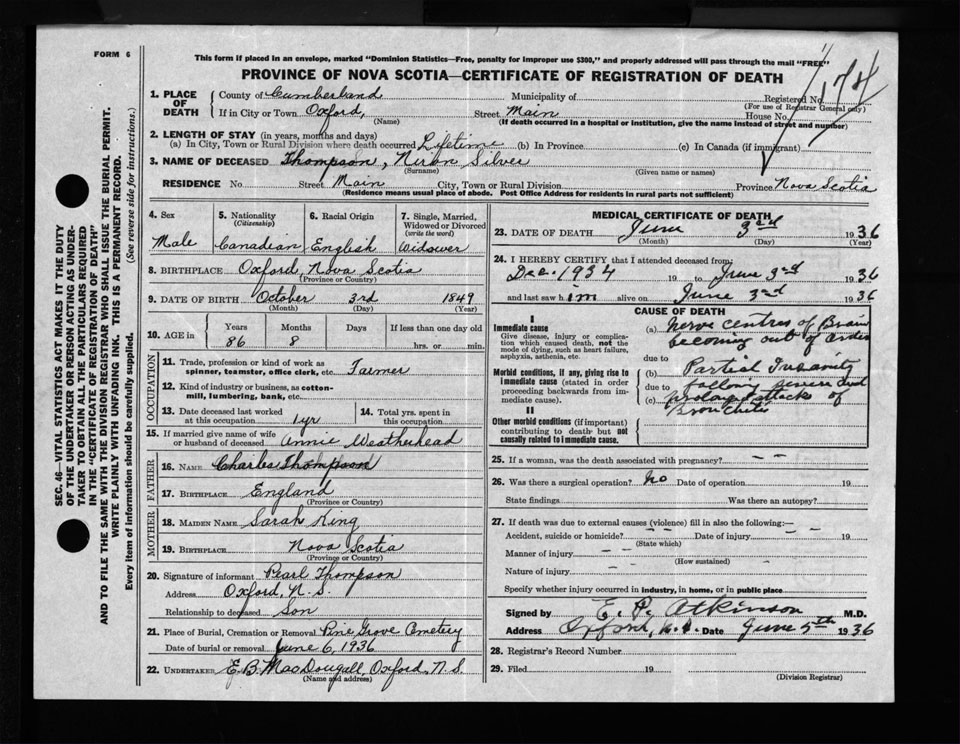 FORM 6
This form if placed in an envelope, marked "Dominion Statistics—Free, penalty for improper use $300," and properly addressed will pass through the mail "FREE"
PROVINCE OF NOVA SCOTIA—CERTIFICATE OF REGISTRATION OF DEATH
174
1. PLACE OF DEATH County of Cumberland Municipality of Registered No.
(For use of Registrar General only)
If in City or Town Oxford, Street Main House No.
(Name) (If death occurred in a hospital or institution, give the name instead of street and number)
2. LENGTH OF STAY (in years, months and days)
(a) In City, Town or Rural Division where death occurred Lifetime (b) In Province (c) In Canada (if immigrant)
3. NAME OF DECEASED Thompson, Silver
(Surname) (Given name or names)
RESIDENCE No. Street Main City, Town or Rural Division Province Nova Scotia
(Residence means usual place of abode. Post Office Address for residents in rural parts not sufficient)
SEC. 46—VITAL STATISTICS ACT MAKES IT THE DUTY
OF THE UNDERTAKER OR PERSON ACTING AS UNDER-
TAKER TO OBTAIN ALL THE PARTICULARS REQUIRED
IN THE "CERTIFICATE OF REGISTRATION OF DEATH"
AND TO FILE THE SAME WITH THE DIVISION REGISTRAR WHO SHALL ISSUE THE BURIAL PERMIT.
WRITE PLAINLY WITH UNFADING INK. THIS IS A PERMANENT RECORD.
Every item of information should be carefully supplied. (See reverse side for instructions.)
4. Sex Male
5. Nationality (Citizenship) Canadian
6. Racial Origin English
7. Single, Married, Widowed or Divorced (write the word) Widower
8. BIRTHPLACE Oxford, Nova Scotia
(Province or Country)
9. DATE OF BIRTH October 3rd 1849
(Month) (Day) (Year)
10. AGE in Years 86 Months 8 Days If less than one day old hrs. or min.
OCCUPATION
11. Trade, profession or kind of work as spinner, teamster, office clerk, etc. Farmer
12. Kind of industry or business, as cotton-mill, lumbering, bank, etc.
13. Date deceased last worked at this occupation 1 yr
14. Total yrs. spent in this occupation
15. If married give name of wife or husband of deceased Annie Weatherhead
FATHER
16. NAME Charles Thompson
17. BIRTHPLACE England
(Province or Country)
MOTHER
18. MAIDEN NAME Sarah King
19. BIRTHPLACE Nova Scotia
(Province or Country)
20. Signature of informant Pearl Thompson
Address Oxford, N.S.
Relationship to deceased Son
21. Place of Burial, Cremation or Removal Pine Grove Cemetery
Date of burial or removal June 6, 1936
22. UNDERTAKER E.B. MacDougall, Oxford, N.S.
(Name and address)
MEDICAL CERTIFICATE OF DEATH
23. DATE OF DEATH June 3rd 1936
(Month) (Day) (Year)
24. I HEREBY CERTIFY that I attended deceased from:
Dec. 1934 19 to June 3rd 1936
and last saw him alive on June 3rd 1936
CAUSE OF DEATH
I
Immediate cause
Give disease, injury or complication which caused death, not the mode of dying, such as heart failure, asphyxia, asthenia, etc.
(a) Nerve centres of Brain
becoming out of order
due to
Morbid conditions, if any, giving rise to immediate cause (stated in order proceeding backwards from immediate cause).
(b) Partial Insanity
due to following severe and
(c) prolonged attacks of
Bronchitis
II
Other morbid conditions (if important) contributing to death but not causally related to immediate cause.
25. If a woman, was the death associated with pregnancy? — —
26. Was there a surgical operation? No Date of operation 19
State findings Was there an autopsy?
27. If death was due to external causes (violence) fill in also the following:—
Accident, suicide or homicide? — — Date of injury — — 19
(State which)
Manner of injury — —
(How sustained)
Nature of injury — —
Specify whether injury occurred in industry, in home, or in public place
Signed by E. P. Atkinson M.D.
Address Oxford, N.S. Date June 5th 1936
28. Registrar's Record Number
29. Filed 19
(Division Registrar)